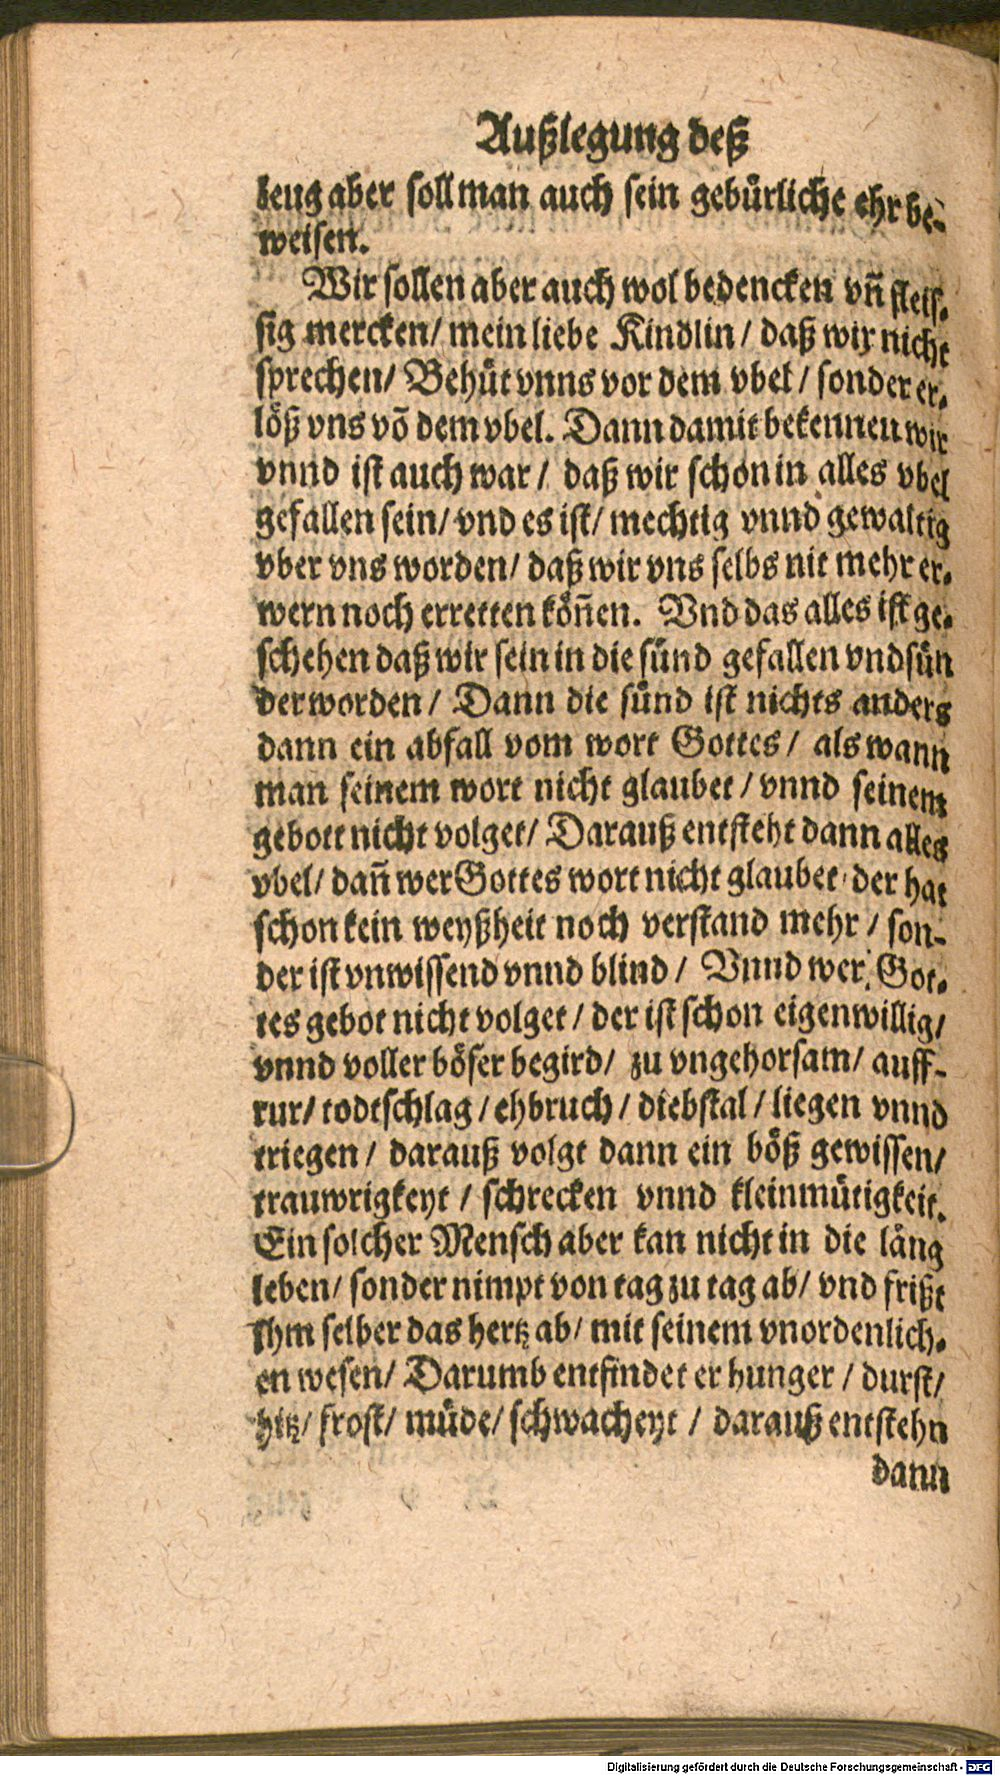 Außlegung deß
zeug aber soll man auch sein gebürliche ehr be-
weisen.
Wir sollen aber auch wol bedencken vñ fleis-
sig mercken/ mein liebe Kindlin/ daß wir nicht
sprechen/ Behüt vnns vor dem vbel/ sonder er-
löß vns võ dem vbel. Dann damit bekennen wir
vnnd ist auch war/ daß wir schon in alles vbel
gefallen sein/ vnd es ist/ mechtig vnnd gewaltig
vber vns worden/ daß wir vns selbs nit mehr er-
wern noch erretten köñen. Vnd das alles ist ge-
schehen daß wir sein in die sünd gefallen vnd sün
der worden/ Dann die sünd ist nichts anders
dann ein abfall vom wort Gottes/ als wann
man seinem wort nicht glaubet/ vnnd seinem
gebott nicht volget/ Darauß entsteht dann alles
vbel/ dañ wer Gottes wort nicht glaubet/ der hat
schon kein weyßheit noch verstand mehr/ son-
der ist vnwissend vnnd blind/ Vnnd wer Got-
tes gebot nicht volget/ der ist schon eigenwillig/
vnnd voller böser begird/ zu vngehorsam/ auff-
rur/ todtschlag/ ehbruch/ diebstal/ liegen vnnd
triegen/ darauß volgt dann ein böß gewissen/
trauwrigkeyt/ schrecken vnnd kleinmütigkeit.
Ein solcher Mensch aber kan nicht in die läng
leben/ sonder nimpt von tag zu tag ab/ vnd frißt
Jhm selber das hertz ab/ mit seinem vnordenlich-
en wesen/ Darumb entfindet er hunger/ durst/
hitz/ frost/ müde/ schwacheyt/ darauß entstehn
dann
Digitalisierung gefördert durch die Deutsche Forschungsgemeinschaft - DFG